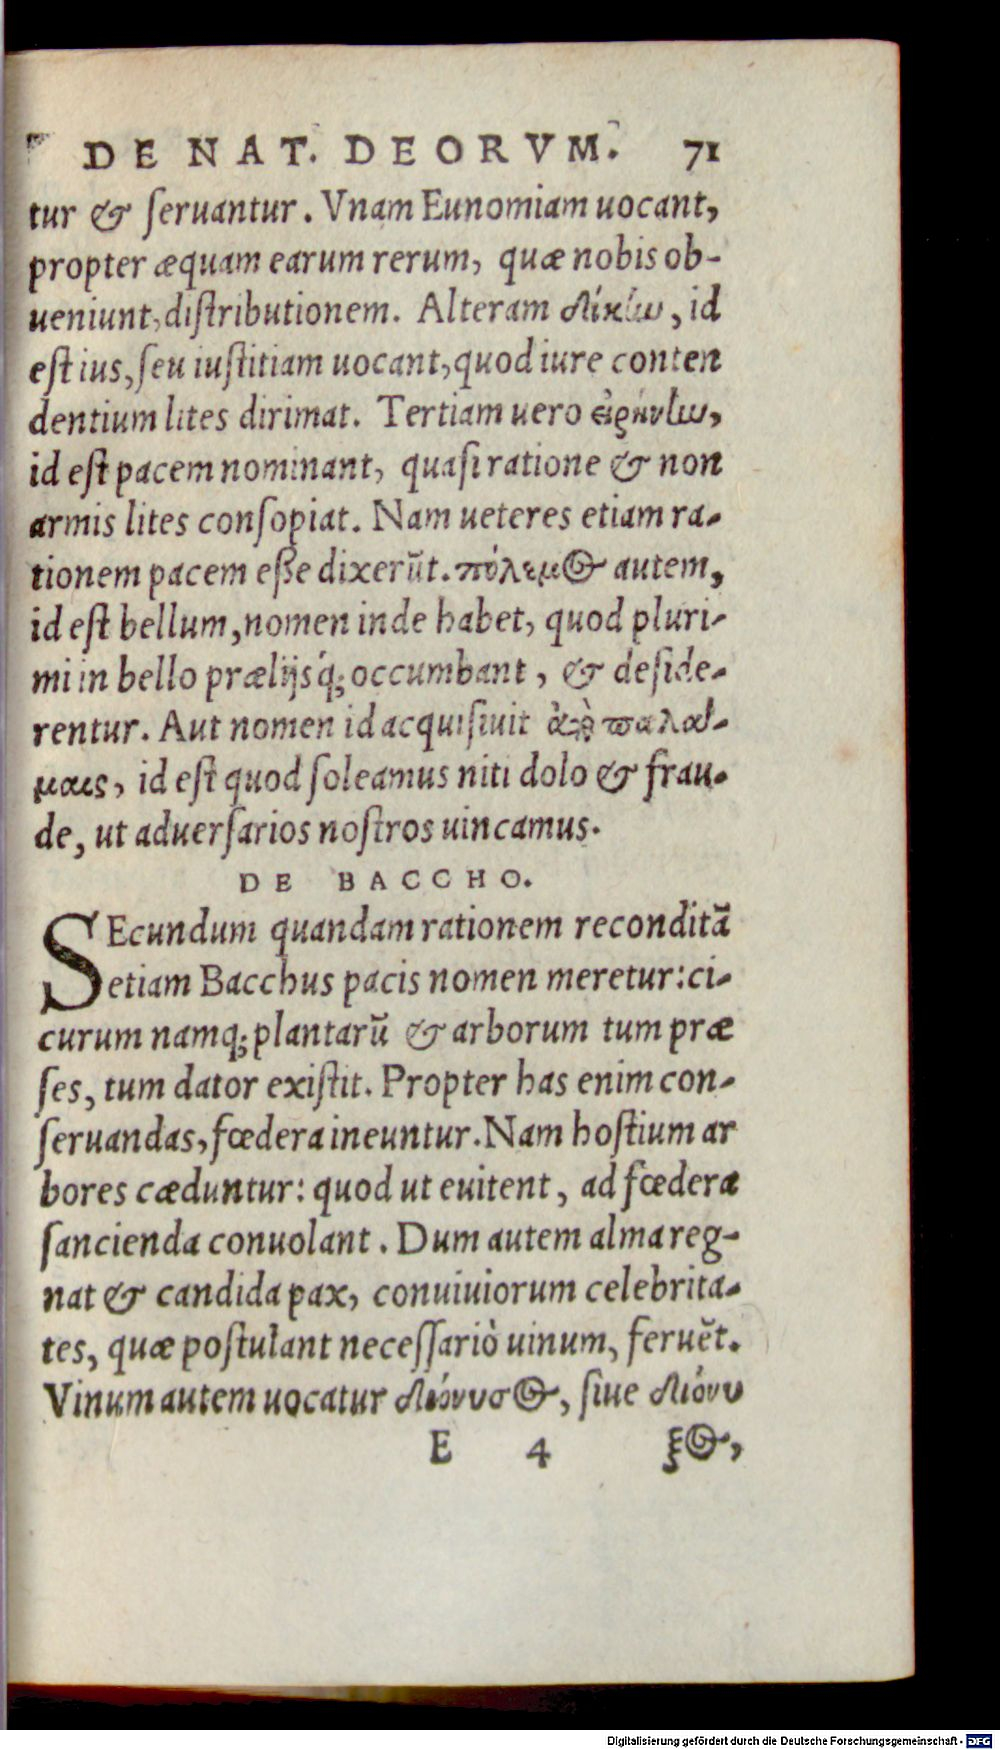 DE NAT. DEORVM. 71
tur & ſeruantur. Vnam Eunomiam uocant,
propter æquam earum rerum, quæ nobis ob-
ueniunt, diſtributionem. Alteram δίκίω, id
eſt ius, ſeu iuſtitiam uocant, quod iure conten
dentium lites dirimat. Tertiam uero εἰρήνίω,
id eſt pacem nominant, quaſi ratione & non
armis lites conſopiat. Nam ueteres etiam ra-
tionem pacem eſſe dixerūt. πόλεμος autem,
id eſt bellum, nomen inde habet, quod pluri-
mi in bello prælijsq́; occumbant, & deſide-
rentur. Aut nomen id acquiſiuit ἀπὸ παλαί-
μαις, id eſt quod ſoleamus niti dolo & frau-
de, ut aduerſarios noſtros uincamus.
DE BACCHO.
SEcundum quandam rationem reconditā
etiam Bacchus pacis nomen meretur: ci-
curum namq; plantarū & arborum tum præ
ſes, tum dator exiſtit. Propter has enim con-
ſeruandas, fœdera ineuntur. Nam hoſtium ar
bores cæduntur: quod ut euitent, ad fœdera
ſancienda conuolant. Dum autem alma reg-
nat & candida pax, conuiuiorum celebrita-
tes, quæ poſtulant neceſſariò uinum, feruēt.
Vinum autem uocatur διόνυσος, ſiue διόνυ
E 4 ξος,
Digitalisierung gefördert durch die Deutsche Forschungsgemeinschaft - DFG